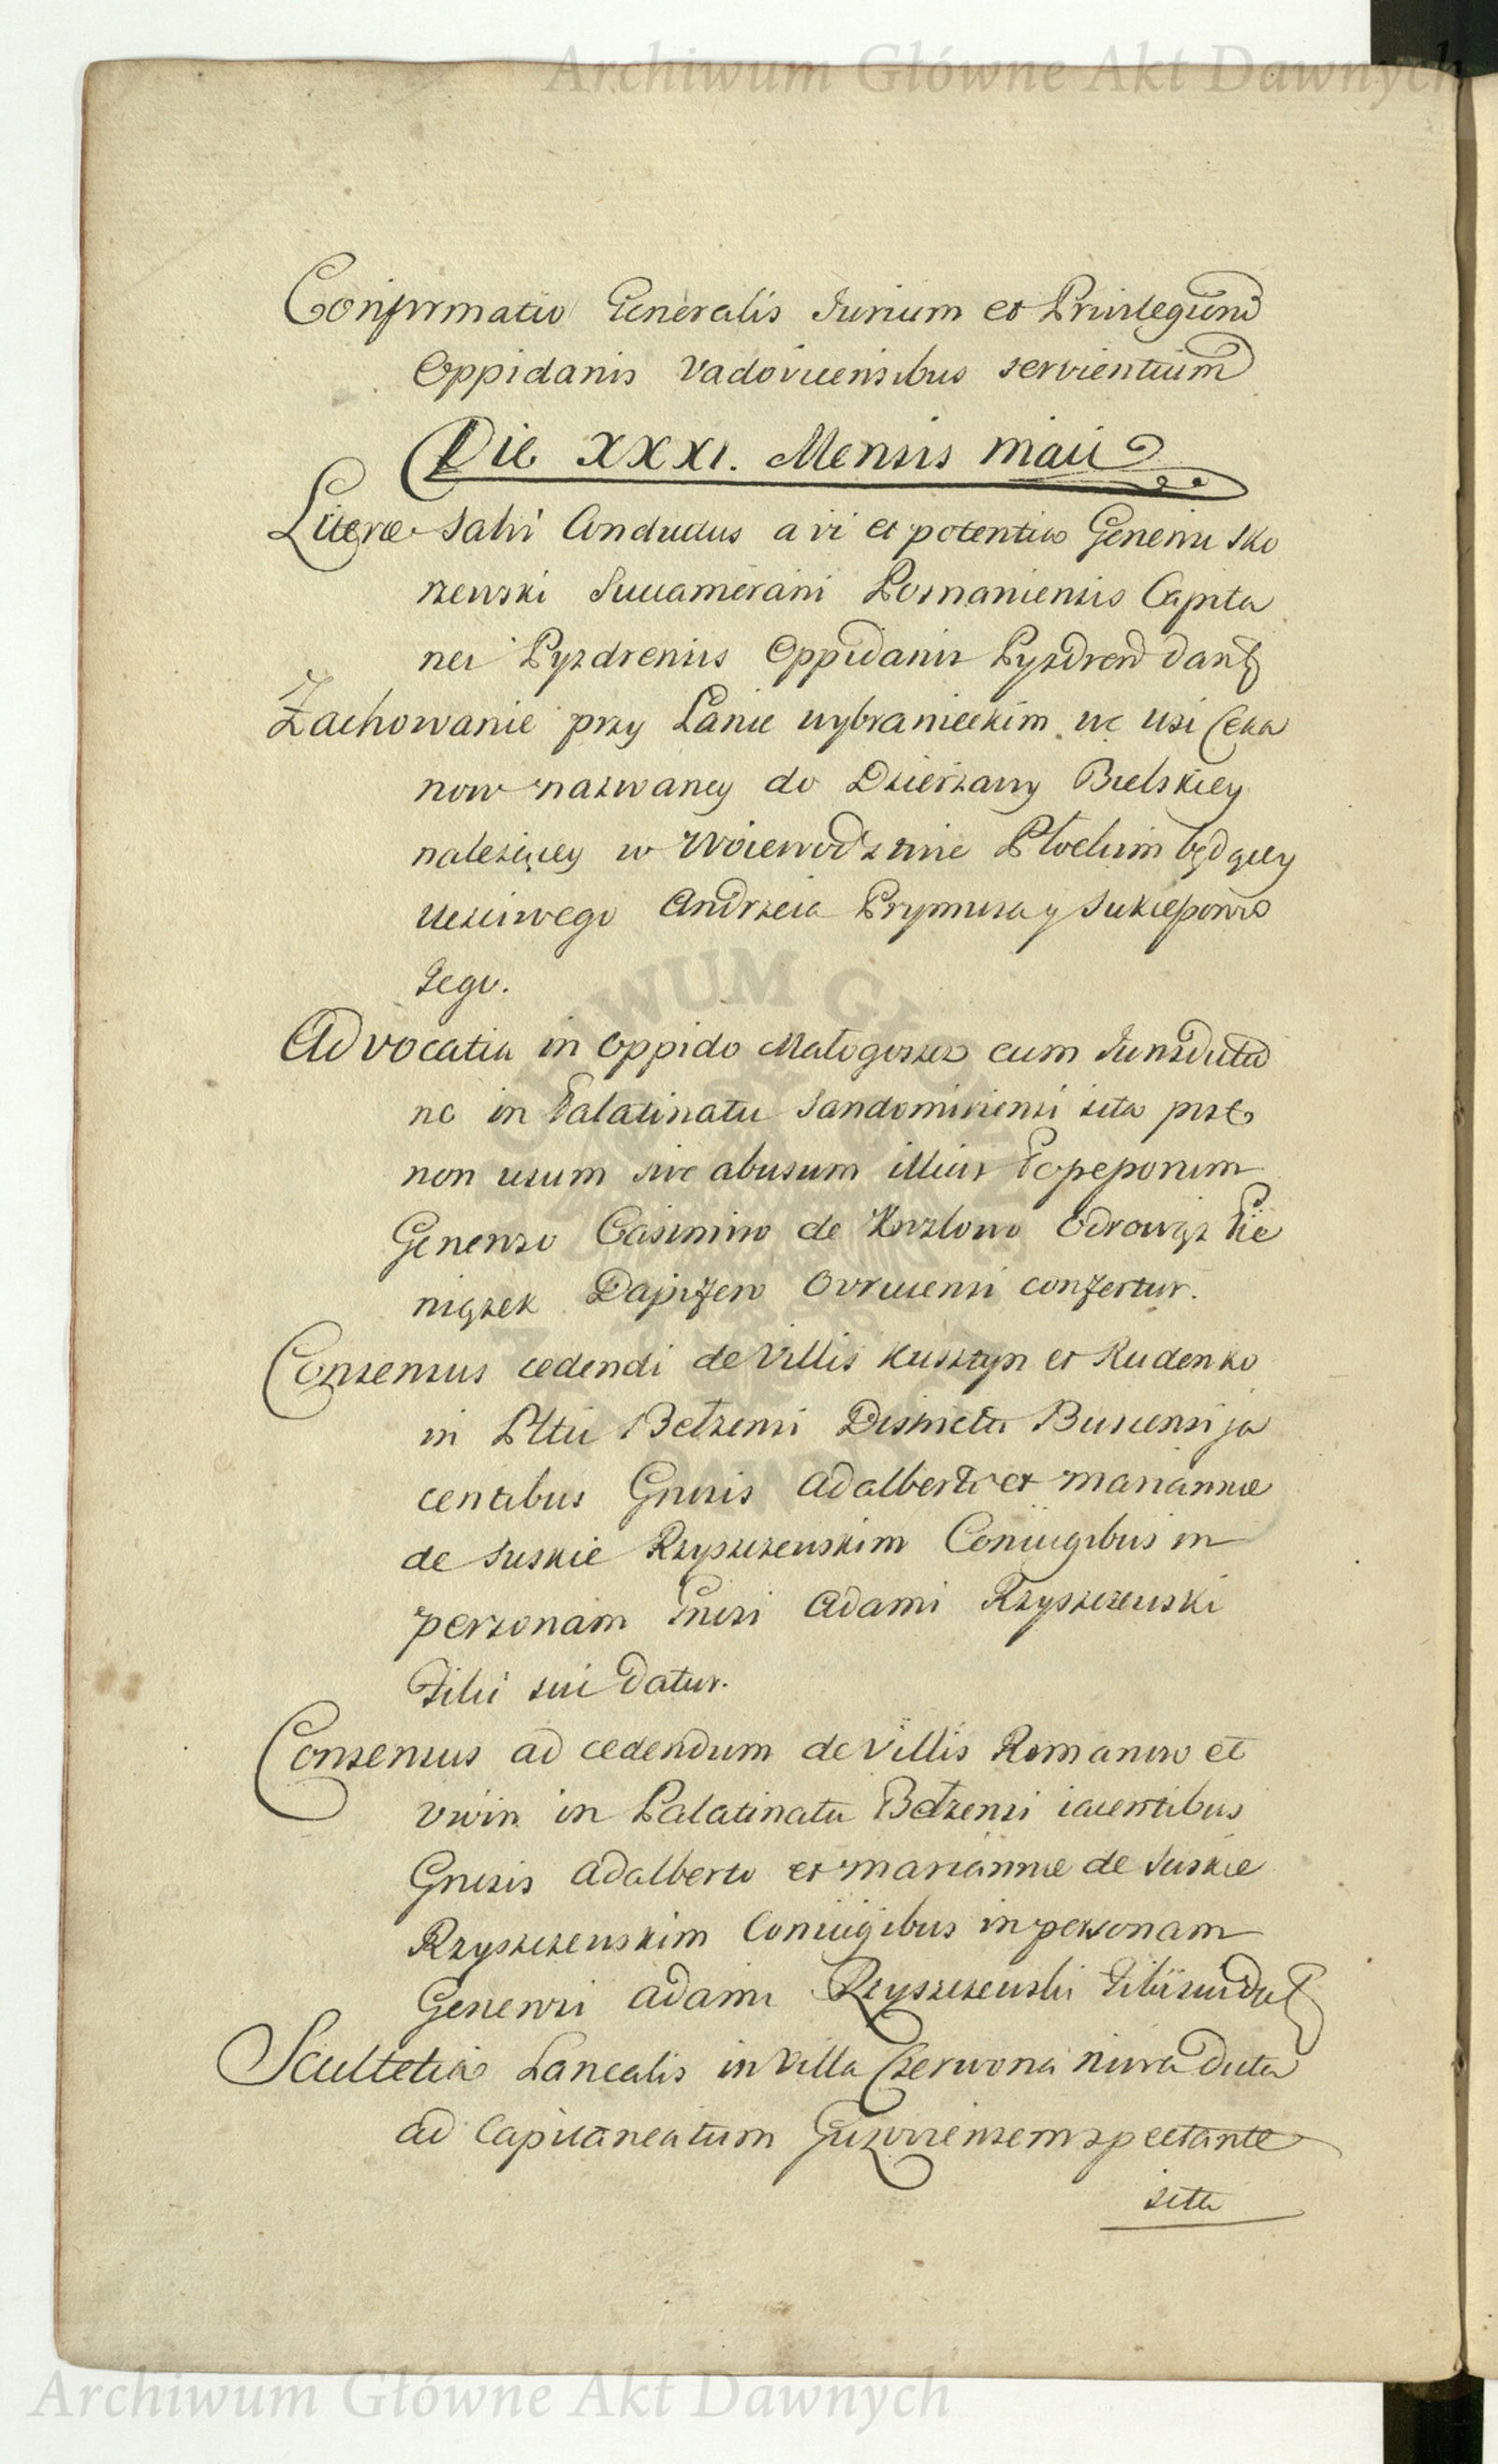 Archiwum Główne Akt Dawnych
Confirmatio Generalis Jurium et Privilegiorum
Oppidanis Vadovicensibus servientium
Die XXXI. Mensis maii
Literæ Salvi Conductus a vi et potentia Generosi Sko
rzewski Succamerarii Posnaniensis Capita
nei Pyzdrensis Oppidanis Pyzdren dant
Zachowanie przy Łanie wybranieckim we wsi Ceka
now nazwaney do Dzierzawy Bielskiey
należącey w Woiewodztwie Płockim będącey
uczciwego Andrzeia Prymusa y Sukcessorow
Jego.
Advocatia in Oppido Małogoszcz cum Jurisdictio
ne in Palatinatu Sandomiriensi sita post
non usum sive abusum illius
Generoso Casimiro de Kozlow Odrowąż Pie
niążek Dapifero Ovrucensi confertur.
Consensus cedendi de Villis Kusztyn et Rudenko
in Pltu Bełzensi Districtu Buscensi ja
centibus Gnrsis Adalberto et Mariannæ
de Suskie Rzyszczewskim Coniugibus in
personam Gnrsi Adami Rzyszczewski
Filii sui datur.
Consensus ad cedendum de Villis Romanow et
Uwin in Palatinatu Bełzensi iacentibus
Gnrsis Adalberto et Mariannæ de Suskie
Rzyszczewskim Coniugibus in personam
Generosi Adami Rzyszczewski Filii sui dat
Scultetia Lanealis in Villa Czerwona niwa dicta
ad Capitaneatum Guzoviensem spectante
sita
Archiwum Główne Akt Dawnych